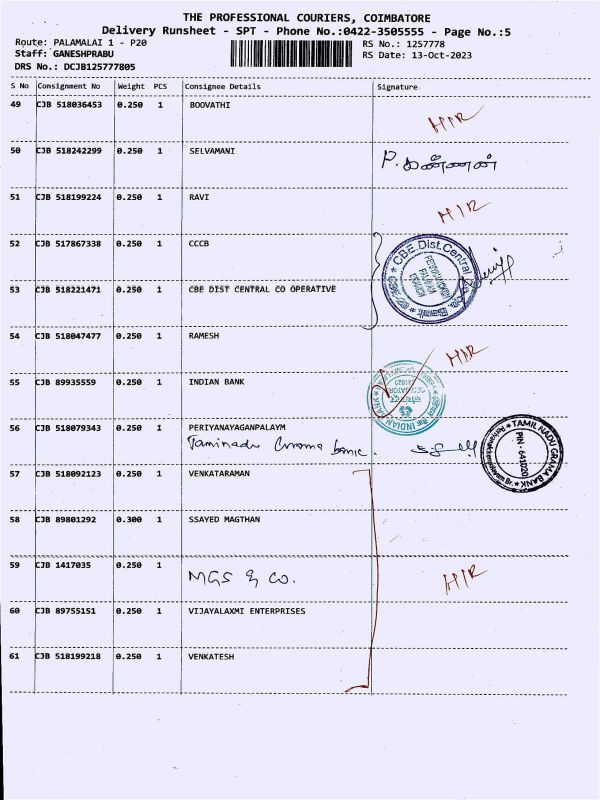 THE PROFESSIONAL COURIERS, COIMBATORE
Delivery Runsheet - SPT - Phone No.:0422-3505555 - Page No.:5
Route: PALAMALAI 1 - P20
Staff: GANESHPRABU
DRS No.: DCJB125777805
RS No.: 1257778
RS Date: 13-Oct-2023
S No Consignment No Weight PCS Consignee Details Signature
49 CJB 518036453 0.250 1 BOOVATHI
HIR
50 CJB 518242299 0.250 1 SELVAMANI
P. கண்ணன்
51 CJB 518199224 0.250 1 RAVI
HIR
52 CJB 517867338 0.250 1 CCCB
CBE.Dist.Central
53 CJB 518221471 0.250 1 CBE DIST CENTRAL CO OPERATIVE
54 CJB 518047477 0.250 1 RAMESH
HIR
55 CJB 89935559 0.250 1 INDIAN BANK
INDIAN BANK
56 CJB 518079343 0.250 1 PERIYANAYAGANPALAYM
Tamilnadu Grama bank.
TAMIL NADU GRAMA BANK
PIN - 641020
57 CJB 518092123 0.250 1 VENKATARAMAN
58 CJB 89801292 0.300 1 SSAYED MAGTHAN
59 CJB 1417035 0.250 1
MGS & CO.
HIR
60 CJB 89755151 0.250 1 VIJAYALAXMI ENTERPRISES
61 CJB 518199218 0.250 1 VENKATESH